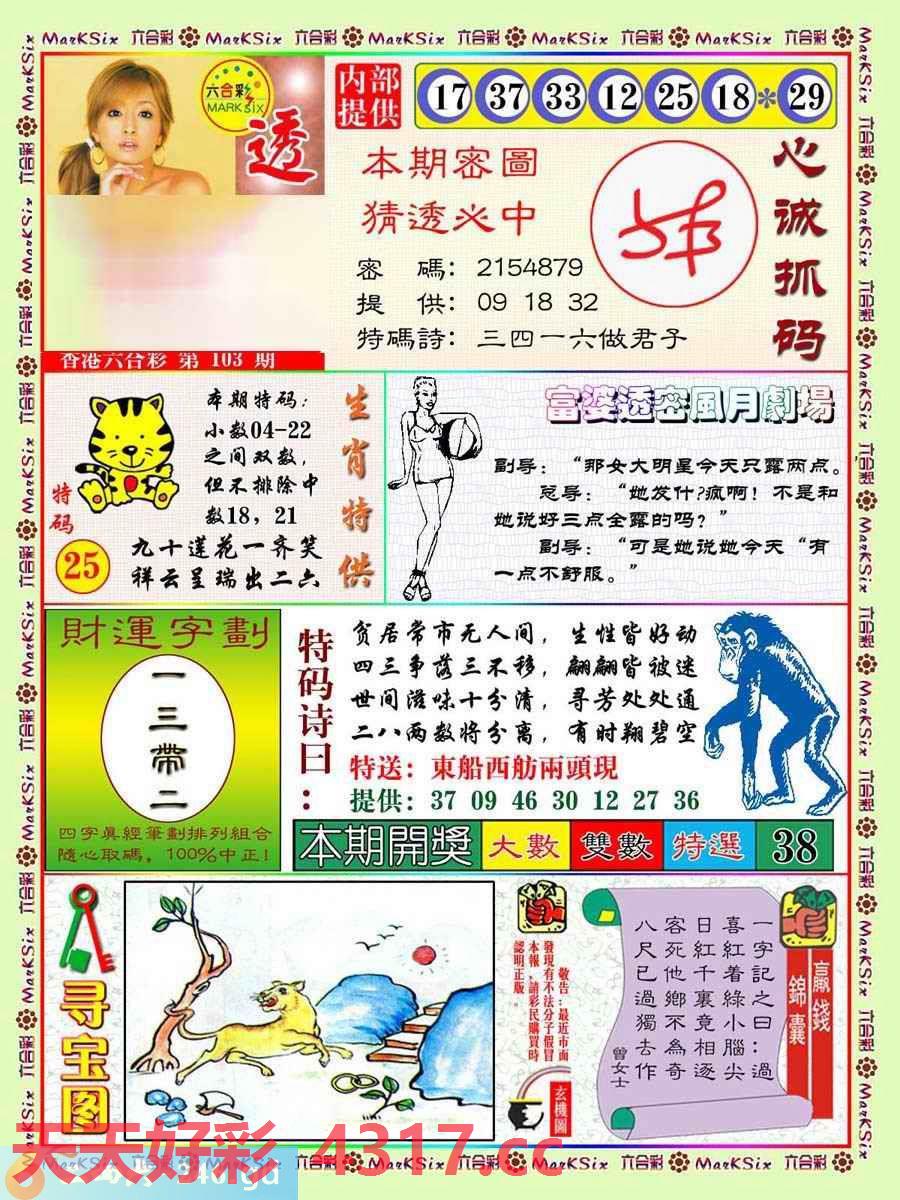 MarKSix 六合彩 MarKSix 六合彩 MarKSix 六合彩 MarKSix 六合彩 MarKSix 六合彩 MarKSix
六合彩
MARK Six
透
内部
提供
17 37 33 12 25 18 * 29
本期密圖
猜透必中
密 碼: 2154879
提 供: 09 18 32
特碼詩: 三四一六做君子
心诚抓码
香港六合彩 第 103 期
本期特码:
小数04-22
之间双数,
但不排除中
数18, 21
特码
25
九十莲花一齐笑
祥云呈瑞出二六
生肖特供
富婆透密風月劇場
副导: “那女大明星今天只露两点。”
总导: “她发什?疯啊! 不是和
她说好三点全露的吗? ”
副导: “可是她说她今天“有
一点不舒服。”
財運字劃
一三帶二
四字真經筆劃排列組合
隨心取碼, 100%中正!
特码诗曰:
贫居常市无人间, 生性皆好动
四三争落三不移, 翩翩皆被迷
世间滋味十分清, 寻芳处处通
二八两数将分离, 有时翔碧空
特送: 東船西舫兩頭現
提供: 37 09 46 30 12 27 36
本期開獎 大數 雙數 特選 38
寻宝图
敬告:最近市面
發現有不法分子假冒
本報,請彩民購買時
認明正版。
玄機圖
贏錢
錦囊
一字記之曰:過
喜紅着綠小腦尖
日紅千裏竟相逐
客死他鄉不為奇
八尺已過獨去作
曾女士
天天好彩 4317.cc
MarKSix 六合彩 MarKSix 六合彩 MarKSix 六合彩 MarKSix